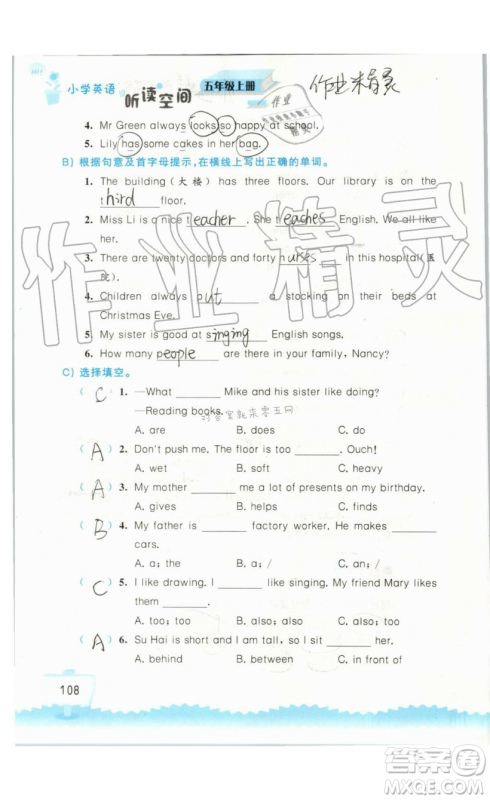 小学英语
听读空间
五年级上册
作业
精灵
作业精灵
4. Mr Green always looks so happy at school.
5. Lily has some cakes in her bag.
B) 根据句意及首字母提示,在横线上写出正确的单词。
1. The building (大楼) has three floors. Our library is on the
third floor.
2. Miss Li is a nice teacher. She teaches English. We all like
her.
3. There are twenty doctors and forty nurses in this hospital (医
院).
4. Children always put a stocking on their beds at
Christmas Eve.
5. My sister is good at singing English songs.
6. How many people are there in your family, Nancy?
C) 选择填空。
( C ) 1. —What ______ Mike and his sister like doing?
—Reading books. 对答案就来零五网
A. are B. does C. do
( A ) 2. Don't push me. The floor is too ______. Ouch!
A. wet B. soft C. heavy
( A ) 3. My mother ______ me a lot of presents on my birthday.
A. gives B. helps C. finds
( B ) 4. My father is ______ factory worker. He makes ______
cars.
A. a; the B. a; / C. an; /
( C ) 5. I like drawing. I ______ like singing. My friend Mary likes
them ______.
A. too; too B. also; also C. also; too
( A ) 6. Su Hai is short and I am tall, so I sit ______ her.
A. behind B. between C. in front of
108
作业精灵
答案圈
MXQE.COM